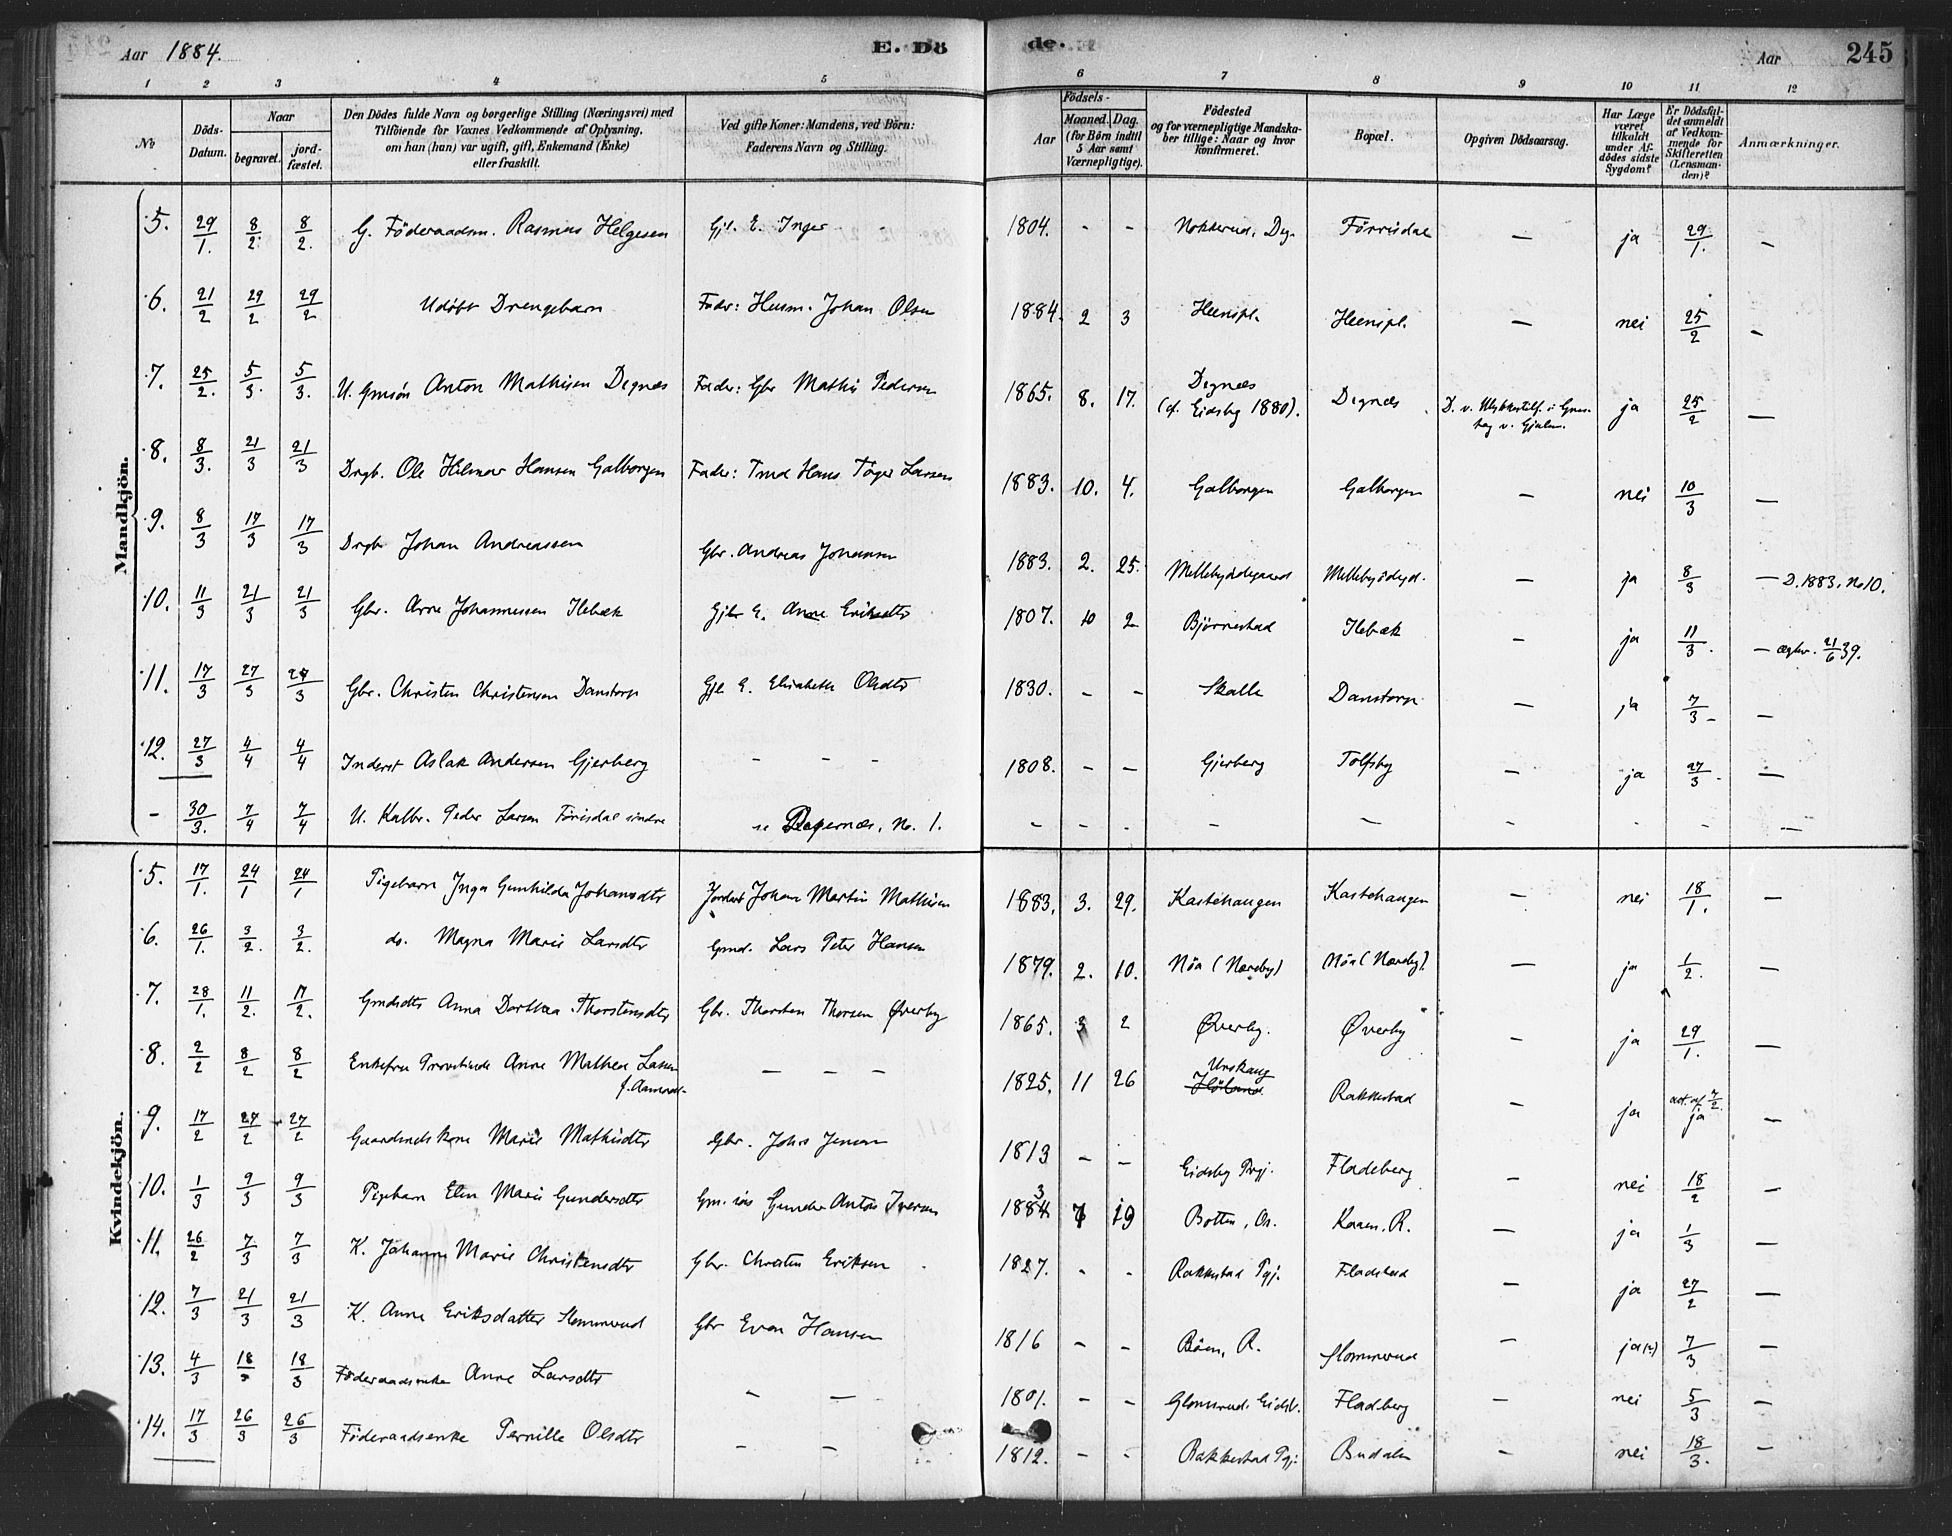 Aar 1884. E. Dö de. Aar 245
1 2 3 4 5 6 7 8 9 10 11 12
No
Döds-Datum.
Naar
begravet. jord-fæstet.
Den Dödes fulde Navn og borgerlige Stilling (Næringsvei) med Tilföiende for Voxnes Vedkommende af Oplysning, om han (hun) var ugift, gift, Enkemand (Enke) eller fraskilt.
Ved gifte Koner: Mandens, ved Börn: Faderens Navn og Stilling.
Födsels-
Aar Maaned. Dag.
(for Börn indtil 5 Aar samt Værnepligtige).
Födested og for værnepligtige Mandska-ber tillige: Naar og hvor konfirmeret.
Bopæl.
Opgiven Dödsaarsag.
Har Læge været tilkaldt under Af-dödes sidste Sygdom?
Er Dödsfal-det anmeldt af Vedkom-mende for Skifteretten (Lensman-den)?
Anmærkninger.
Mandkjön.
5. 29/1. 8/2. 8/2. G. Föderaadsm. Rasmus Helgesen Gjl. E. Inger 1804. - - Nokkerud, Deg. Förrisdal — ja 29/1. —
6. 21/2 29/2 29/2 Udöbt Drengebarn Fader: Husm. Johan Olsen 1884. 2 3 Heenspl. Heenspl. — nei 25/2 —
7. 25/2. 5/3. 5/3. U. Gmsön Anton Mathisen Degnæs Fader: Gbr Mathis Pedersen 1865. 8. 17. Degnæs (cf. Eidsby 1880). Degnæs D. v. Ulykkestilf. i ja 25/2 —
8. 8/3. 21/3 21/3 Drgb. Ole Hilmar Hansen Galborgen Fader: Hans Töger Larsen 1883. 10. 4. Galborgen Galborgen — nei 10/3 —
9. 8/3 17/3 17/3 Drgb Johan Andreassen Gbr. Andreas Johansen 1883. 2. 25. — ja 8/3 — D. 1883, No 10.
10. 11/3 21/3 21/3 Gbr. Arne Johannessen Ilebæk Gjbr E. Anne Eriksdtr 1807. 10 2 Björnestad Ilebæk — ja 11/3. — ægtev. 21/6 39.
11. 17/3 27/3 27/3 Gbr. Christen Christensen Danstorp Gjl E. Elisabeth Olsdtr 1830. - - Skalle Danstorp — ja 7/3 — —
12. 27/3 4/4 4/4 Inderst Aslak Andersen Gjerberg - - - 1808. - — Gjerberg Tolfsby — ja 27/3. —
- 30/3. 7/4 7/4 U. Kalbr. Peder Larsen Förisdal söndre se Degernæs, No. 1. - - - - — - - - —
Kvindekjön.
5. 17/1. 24/1 24/1 Pigebarn Inga Gunhilda Johansdtr Inderst Johan Martin Mathisen 1883. 3. 29. Kastehaugen Kastehaugen — nei 18/1. —
6. 26/1. 3/2. 3/2. do. Magna Marie Larsdtr Gmd. Lars Peter Hansen 1879. 2. 10. Nöa (Næreby) Nöa (Næreby). — ja 1/2. —
7. 28/1. 11/2. 11/2. Gmdsdtr Anna Dorthea Thorstensdtr Gbr. Thorsten Thorsen Øverby 1865. 3 2 Øverby. Øverby — ja 29/1. —
8. 2/2 8/2 8/2 Enkefru Provstinde Anne Mathea Lasen — — — 1825. 11 26 Urskaug Höland Rakkestad — ja ja —
9. 17/2 27/2 27/2 Gaardmdskone Marie Mathisdtr Gbr. Johs Jensen 1813 - - Eidsby Prgj. Fladeberg — nei 18/2 —
10. 1/3 9/3 9/3 Pigebarn Elen Marie Gundersdtr Gm. sös Gunder Anton Iversen 1883 7 19 Botten, Os. Kaaen, R. — ja 1/3 —
11. 26/2 7/3 7/3 K. Johanne Marie Christensdtr Gbr. Christen Eriksen 1827. - - Rakkestad Pgj. Fladstad — ja 27/2 —
12. 7/3 21/3 21/3 K. Anne Eriksdatter Slommerud Gbr Even Hansen 1816 - - Böen, R. Slommerud — ja(?) 7/3 —
13. 4/3 18/3 18/3 Föderaadsenke Anne Larsdtr — — 1801. - - Glomsrud, Eidsb. Fladberg — nei 5/3 —
14. 17/3 26/3 26/3 Föderaadsenke Pernille Olsdtr — — 1812. - - Rakkestad Pgj. Budalen - nei 18/3. —